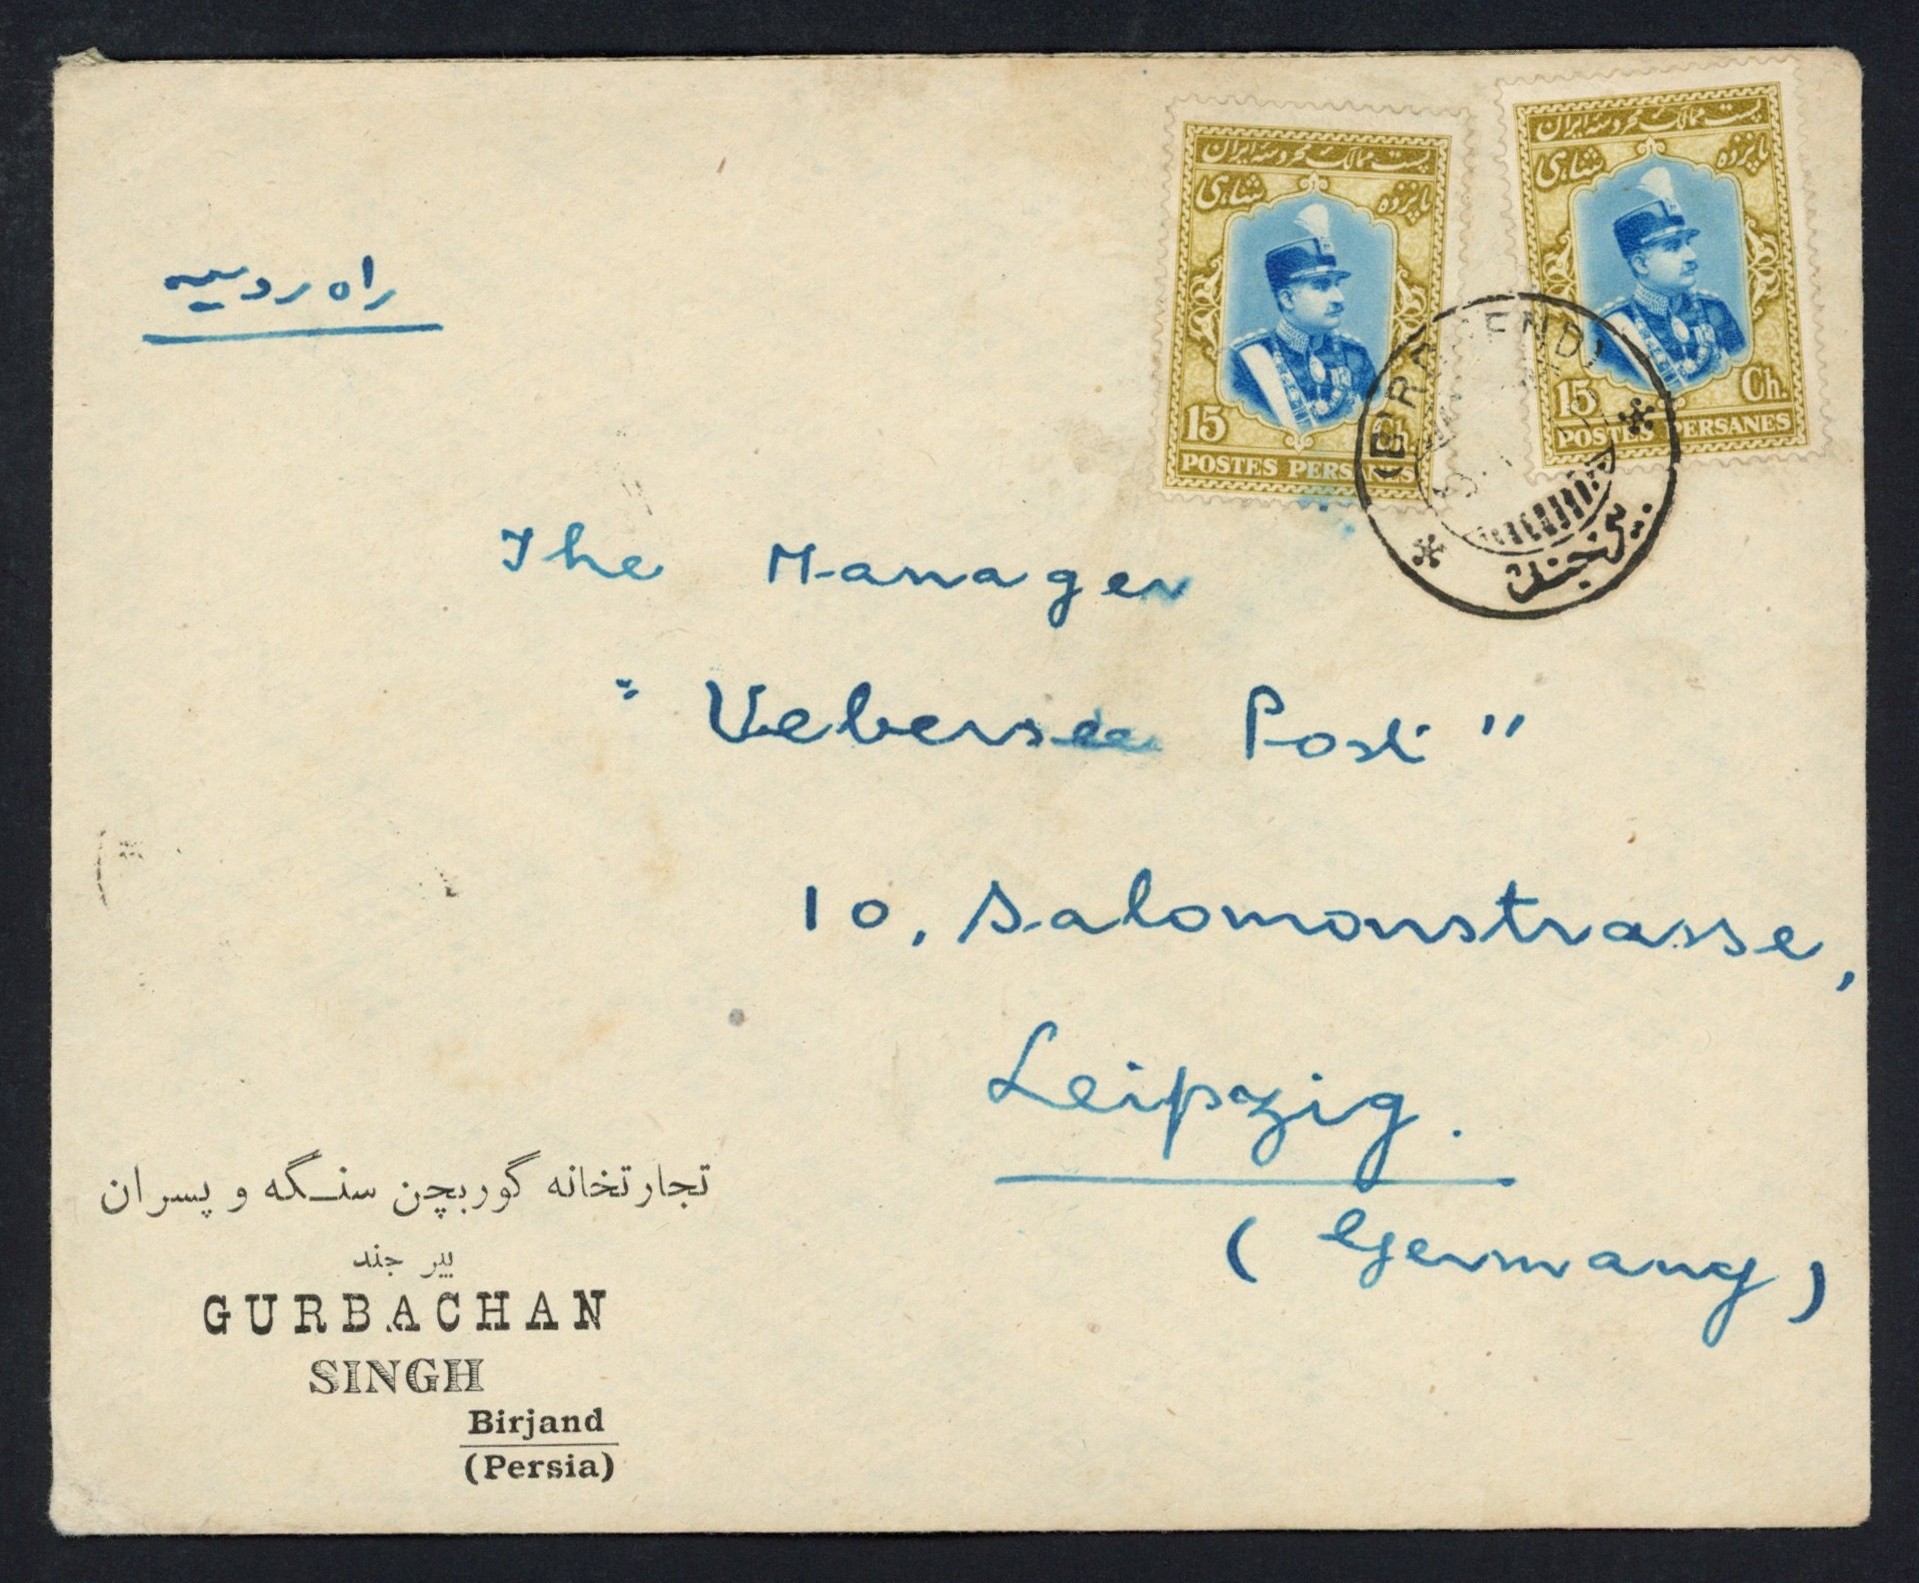 پست ممالک محروسه ایران
پانزده شاهی
15 Ch.
POSTES PERSANES
پست ممالک محروسه ایران
پانزده شاهی
15 Ch.
POSTES PERSANES
بیرجند
راه روسیه
The Manager
"Uebersee Post"
10, Salomonstrasse,
Leipzig.
(Germany)
تجارتخانه گوربچن سنگه و پسران
بیر جند
GURBACHAN
SINGH
Birjand
(Persia)